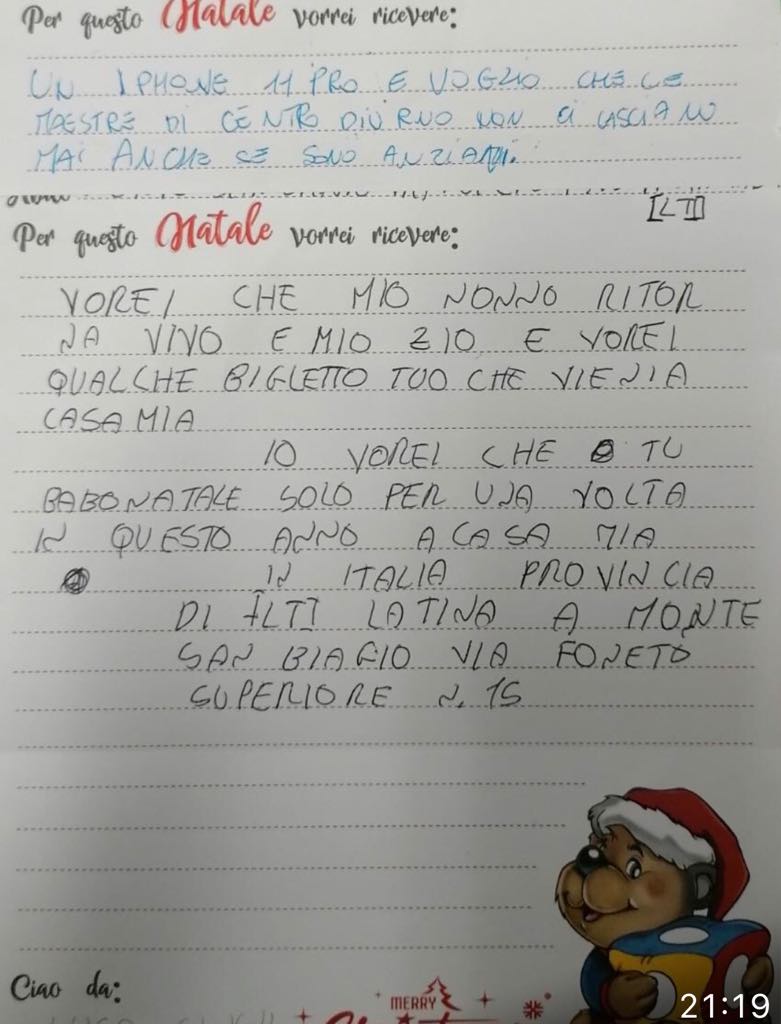 Per questo Natale vorrei ricevere:
UN IPHONE 11 PRO E VOGLIO CHE LE
MAESTRE DI CENTRO DIURNO NON CI LASCIANO
MAI ANCHE SE SONO ANZIANI.
[LT]
Per questo Natale vorrei ricevere:
VOREI CHE MIO NONNO RITOR
NA VIVO E MIO ZIO E VOREI
QUALCHE BIGLETTO TUO CHE VIENI A
CASA MIA
IO VOREI CHE TU
BABONATALE SOLO PER UNA VOLTA
IN QUESTO ANNO A CASA MIA
IN ITALIA PROVINCIA
DI [LT] LATINA A MONTE
SAN BIAGIO VIA FONETO
SUPERIORE N. 15
Ciao da:
MERRY
21:19